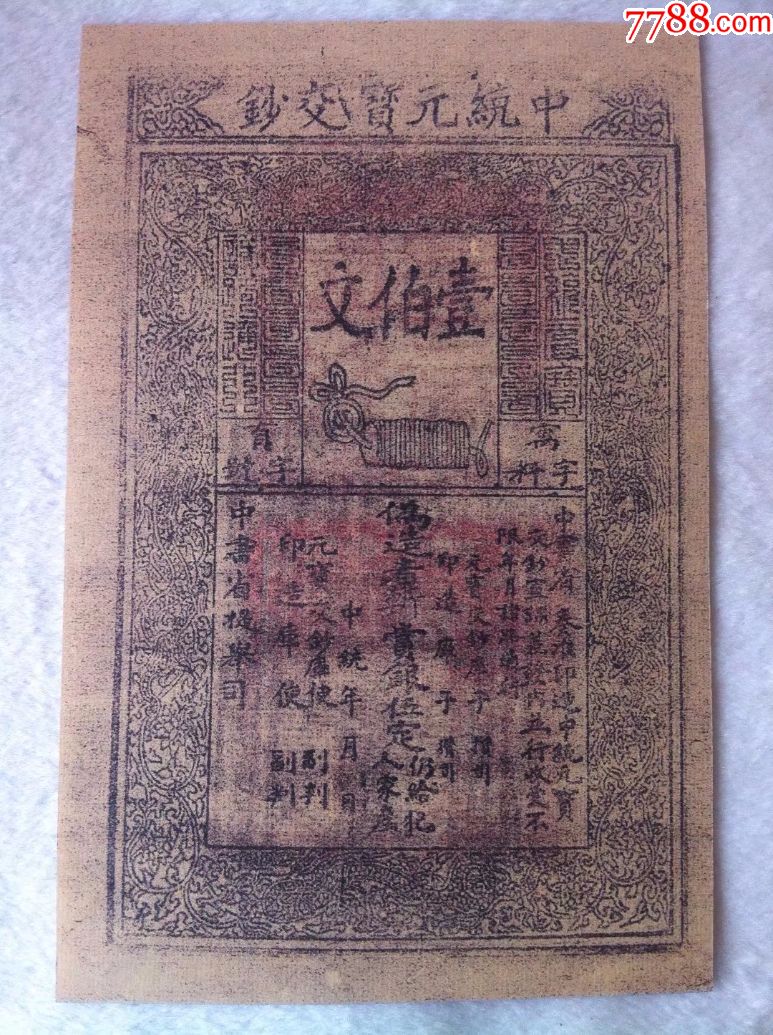 7788.com
中統元寶交鈔
壹伯文
字料
字號
中書省奏准印造中統元寶
交鈔宣課差役內並行收受不
限年月諸路通行
元寶交鈔庫子 攢司
印造庫子 攢司
偽造者斬賞銀伍定仍給犯人家產
中統年月日
元寶交鈔庫使 副判
印造庫使 副判
中書省提舉司